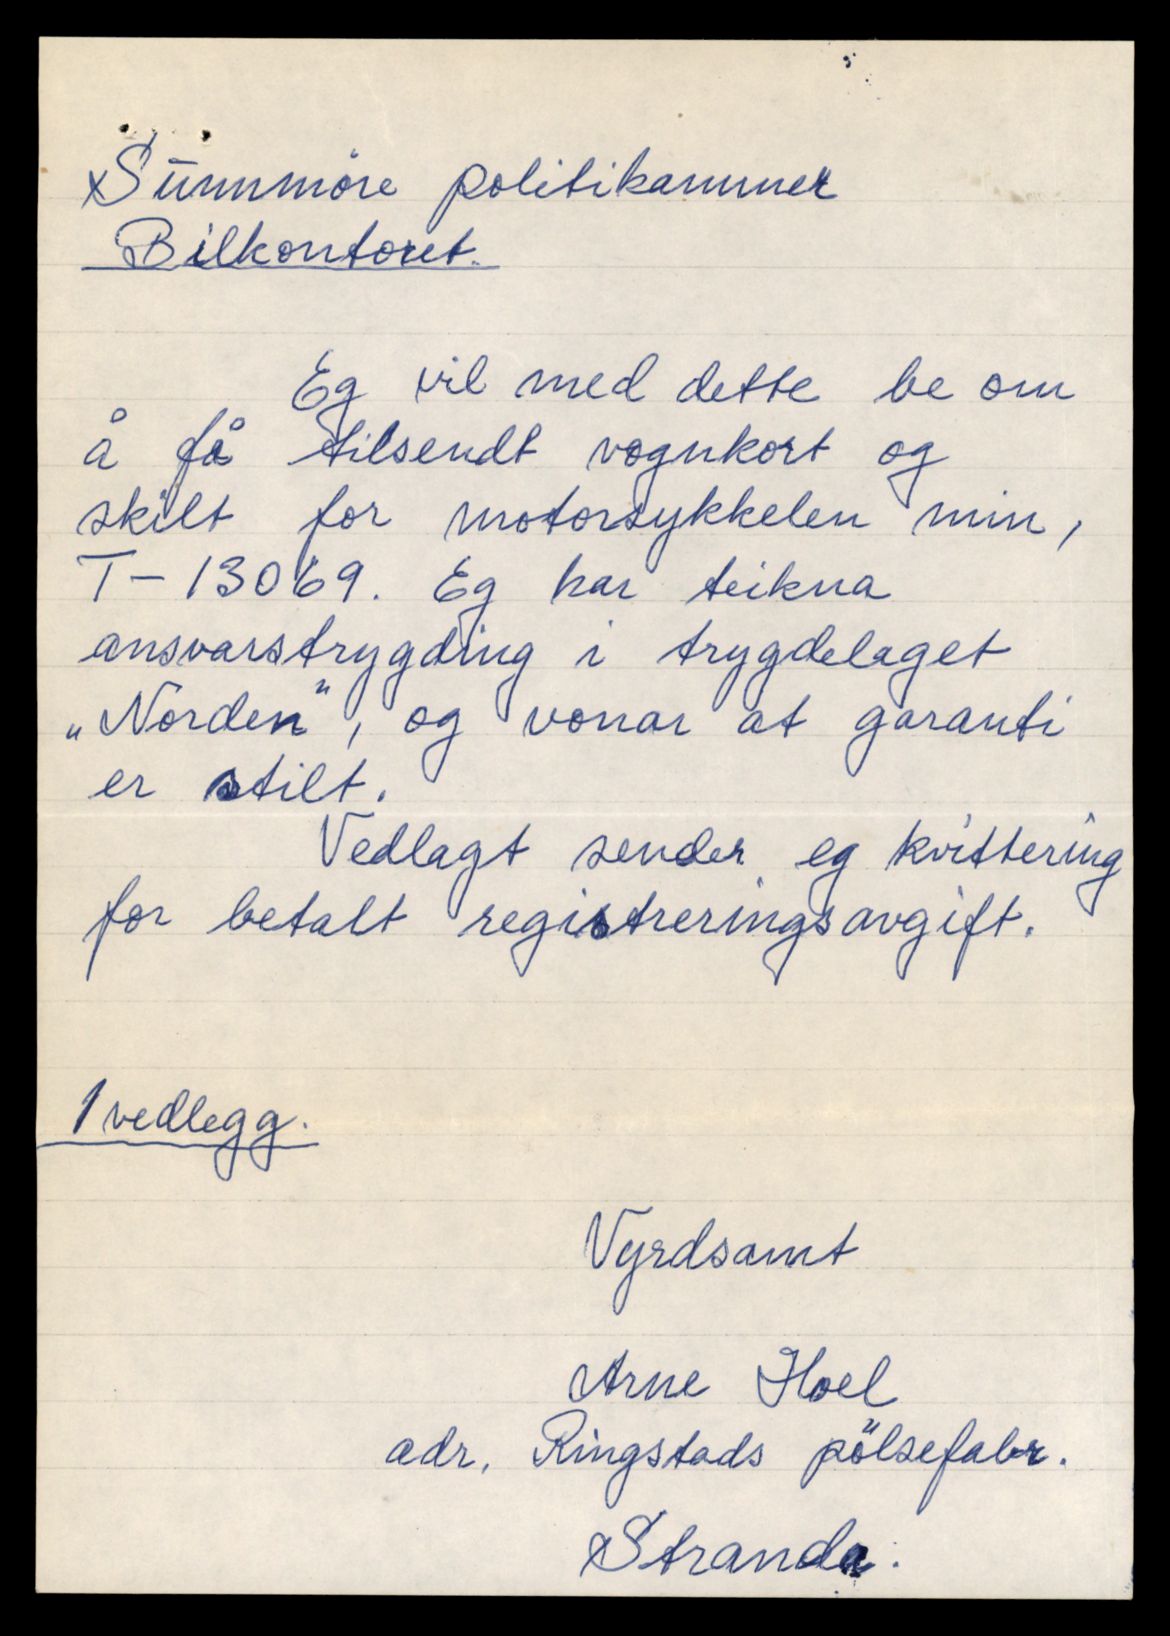 Sunnmöre politikammer
Bilkontoret.
Eg vil med dette be om
å få tilsendt vognkort og
skilt for motorsykkelen min,
T-13069. Eg har teikna
ansvarstrygding i trygdelaget
„Norden", og vonar at garanti
er stilt.
Vedlagt sender eg kvittering
for betalt registreringsavgift.
1 vedlegg.
Vyrdsamt
Arne Hoel
adr. Ringstads pölsefabr.
Stranda.